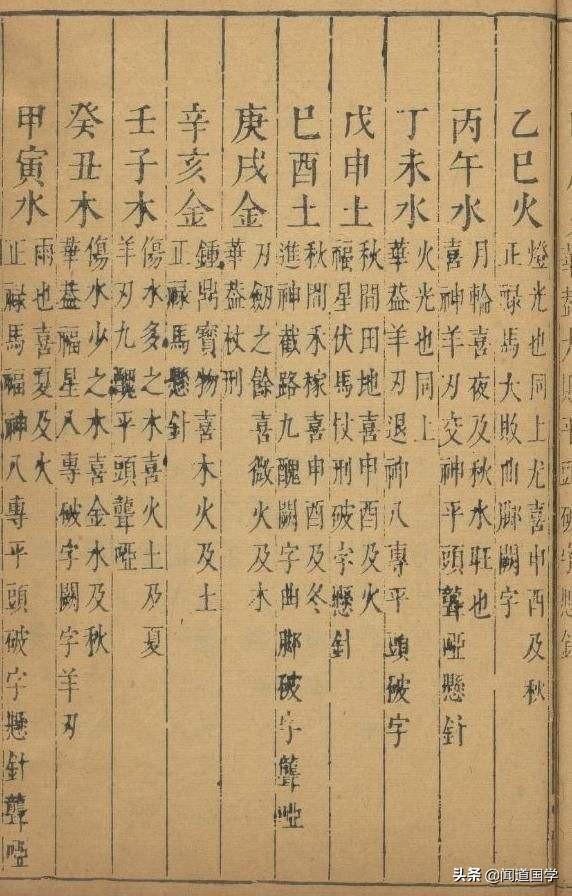 乙巳火
燈光也同上尤喜申酉及秋
正祿馬大敗曲脚闕字
丙午水
月輪喜夜及秋水旺也
喜神羊刃交神平頭聾啞懸針
丁未水
火光也同上
華蓋羊刃退神八專平頭破字
戊申土
秋間田地喜申酉及火
福星伏馬仗刑破字懸針
巳酉土
秋間禾稼喜申酉及冬
進神截路九醜闕字曲脚破字聾啞
庚戌金
刃劒之餘喜微火及木
華蓋杖刑
辛亥金
鍾鼎寶物喜木火及土
正祿馬懸針
壬子木
傷水多之木喜火土及夏
羊刃九醜平頭聾啞
癸丑木
傷水少之木喜金水及秋
華蓋福星八專破字闕字羊刃
甲寅水
雨也喜夏及火
正祿馬福神八專平頭破字懸針聾啞
头条 @闻道国学